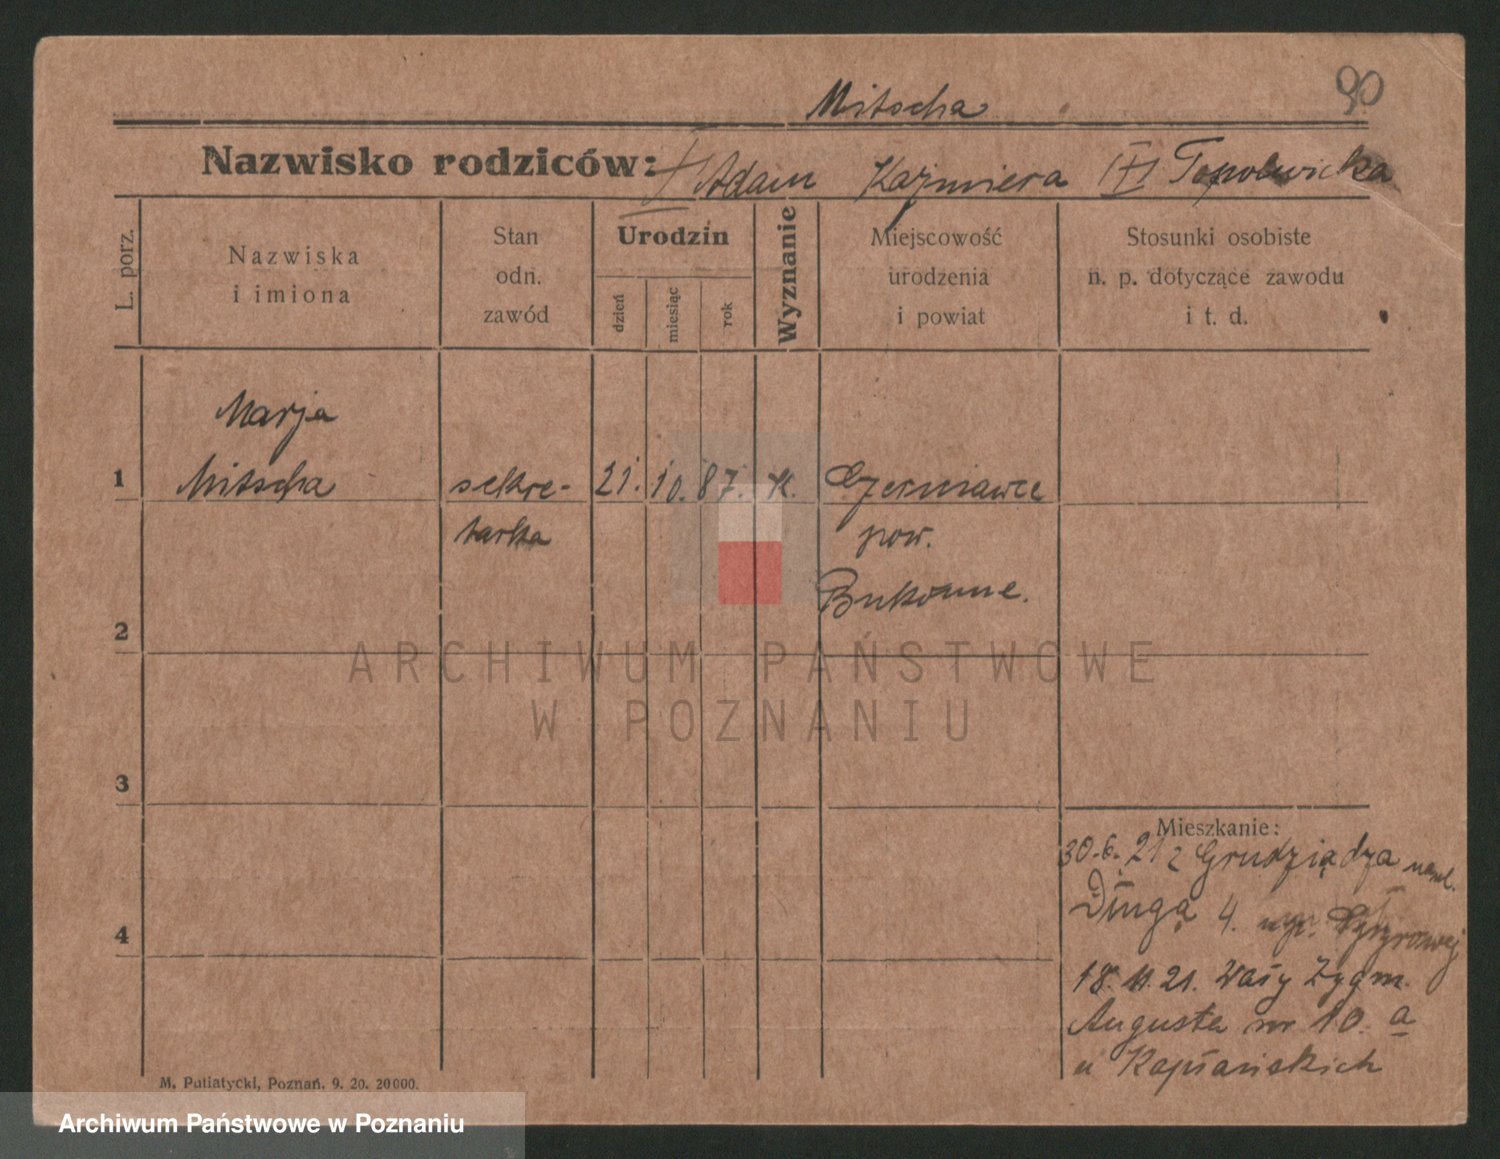 90
Mitscha
Nazwisko rodziców: † Adam Kazmiera (†) Topolwicka
L. porz.
Nazwiska
i imiona
Stan
odn.
zawód
Urodzin
dzień
miesiąc
rok
Wyznanie
Miejscowość
urodzenia
i powiat
Stosunki osobiste
n. p. dotyczące zawodu
i t. d.
Marja
1 Mitscha sekre- 21. 10. 87. K. Czerniawce
tarka pow.
Bukowine.
2
ARCHIWUM PAŃSTWOWE
W POZNANIU
3
Mieszkanie:
30.6.21 z Grudziądza
Długa 4.
4
18.11.21. Wały Zygm.
Augusta nr 10. a
u Kapłańskich
M. Putiatycki, Poznań. 9. 20. 20000.
Archiwum Państwowe w Poznaniu